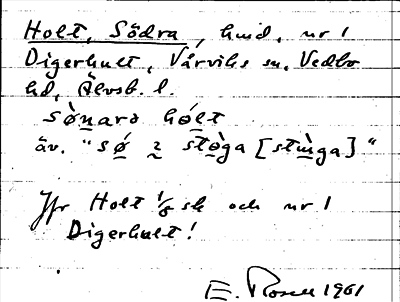 Holt, Södra, hmd, nr 1
Digerhult, Vårviks sn, Vedbo
hd, Älvsb. l.
sø̀narə hólt
äv. "sǿ ɿ stòga [stùga]"
Jfr Holt 1/8 sk och nr 1
Digerhult!
E. Rosell 1961